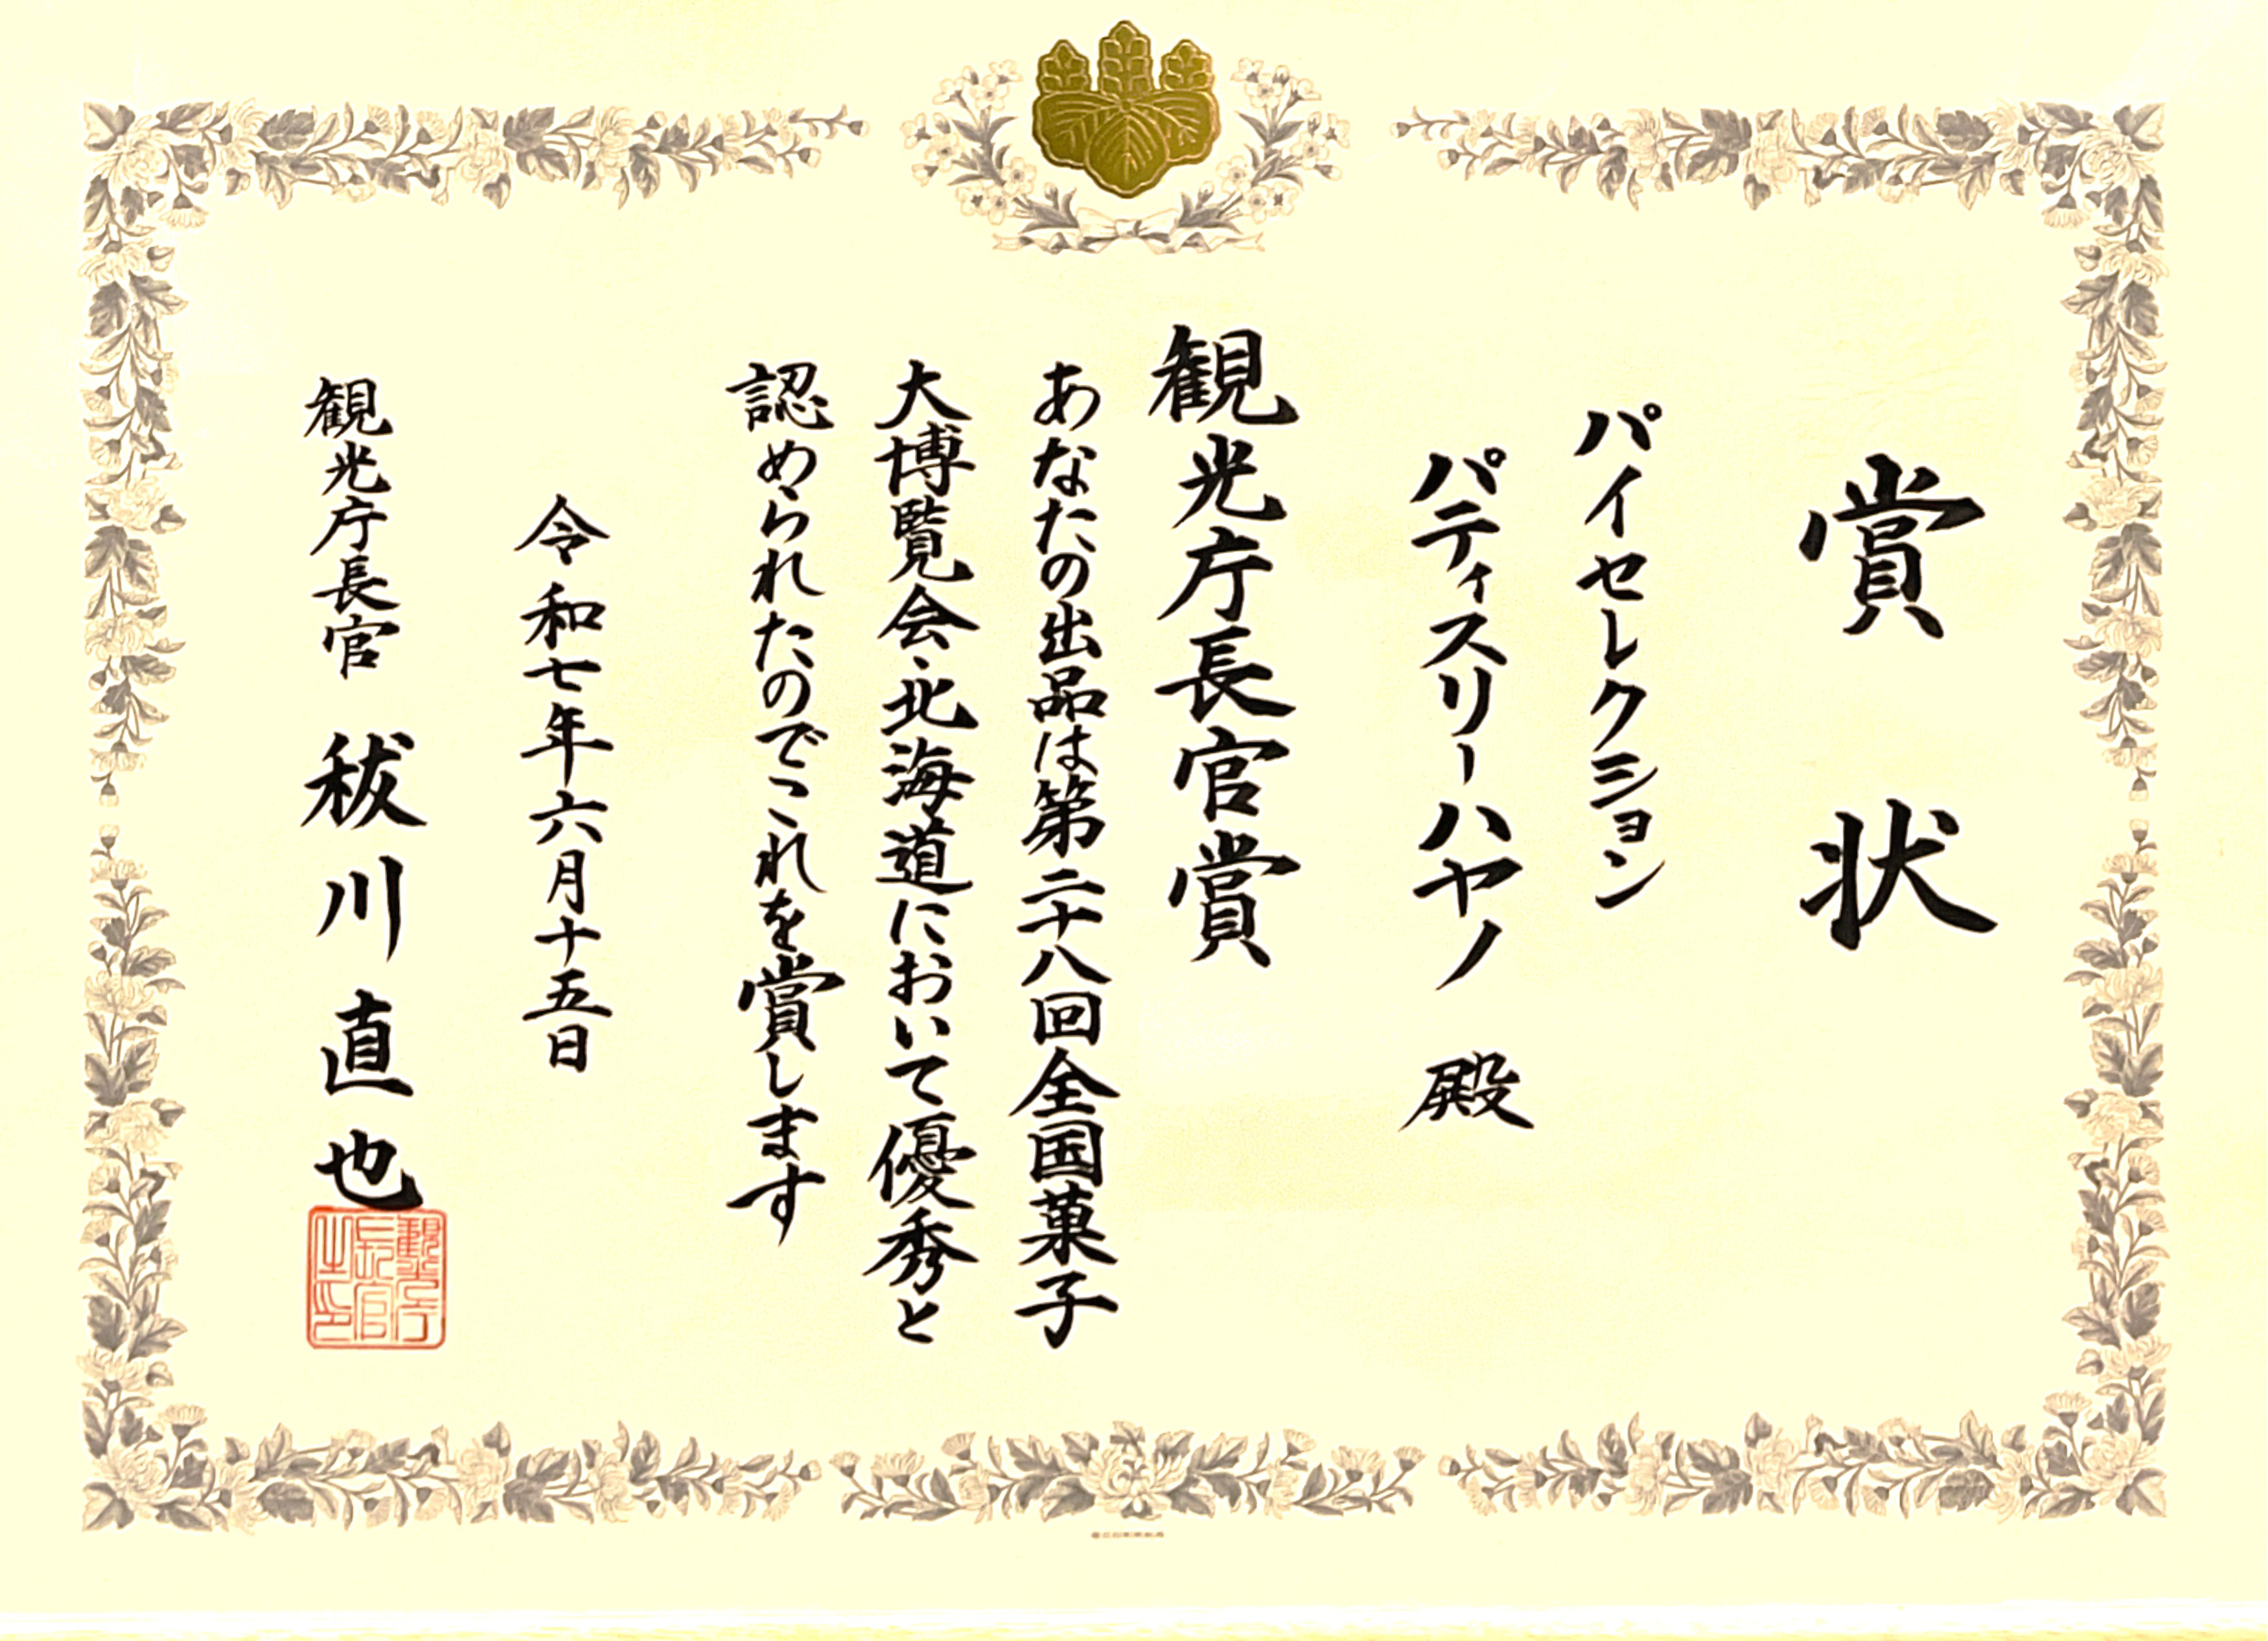 賞状
パイセレクション
パティスリーハヤノ 殿
観光庁長官賞
あなたの出品は第二十八回全国菓子
大博覧会・北海道において優秀と
認められたのでこれを賞します
令和七年六月十五日
観光庁長官 秡川直也
観光庁長官之印